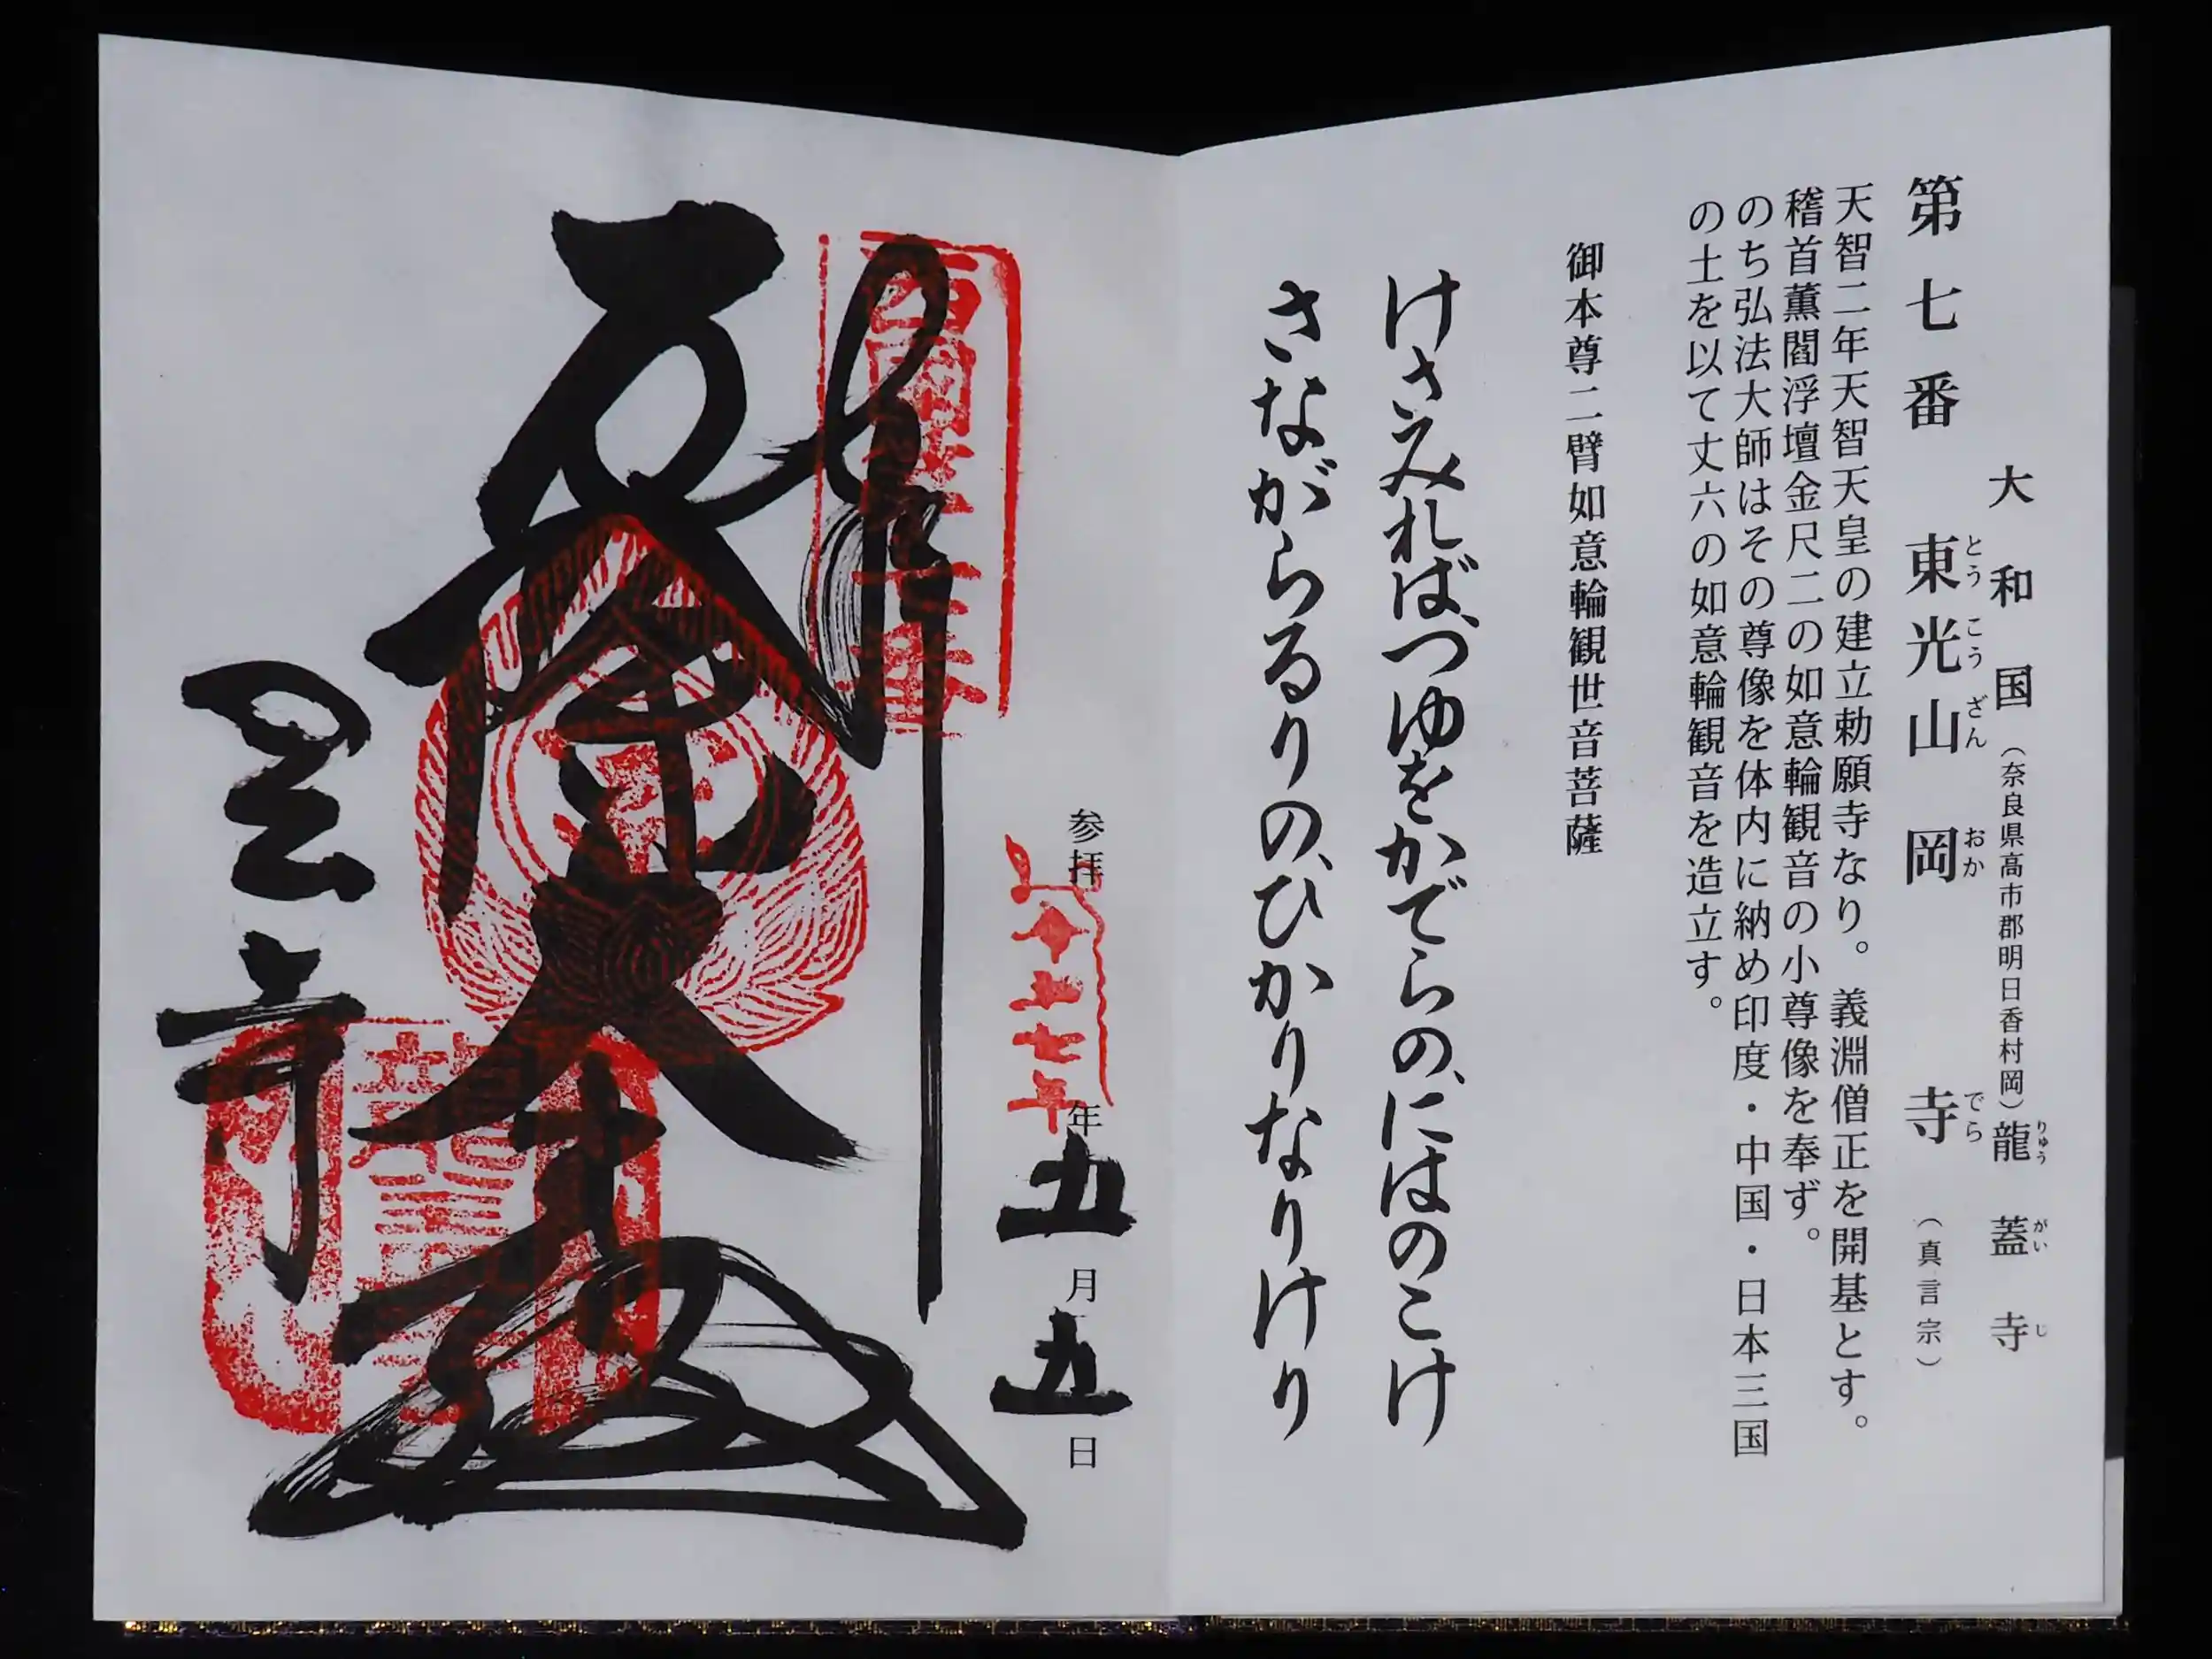 大和国（奈良県高市郡明日香村岡）龍蓋寺
りゅうがいじ
第七番 東光山 岡寺（真言宗）
とうこうざん おかでら
天智二年天智天皇の建立勅願寺なり。義淵僧正を開基とす。
稽首薫閻浮壇金尺二の如意輪観音の小尊像を奉ず。
のち弘法大師はその尊像を体内に納め印度・中国・日本三国
の土を以て丈六の如意輪観音を造立す。
御本尊二臂如意輪観世音菩薩
けさみればつゆをかでらのにはのこけ
さながらるりのひかりなりけり
参拝 年五月五日
西国第七番
岡寺